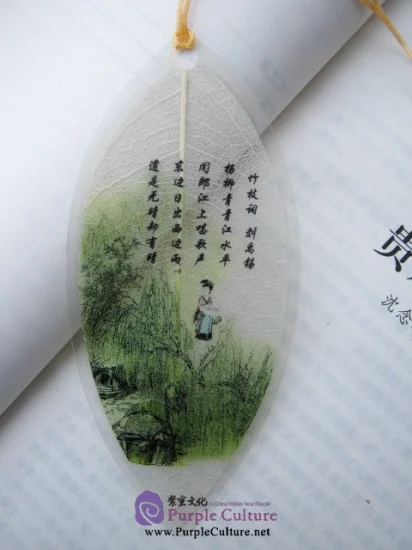 竹枝词 刘禹锡
杨柳青青江水平
闻郎江上唱歌声
东边日出西边雨
道是无晴却有晴
贵
沈念
文化
Purple Culture
www.PurpleCulture.net